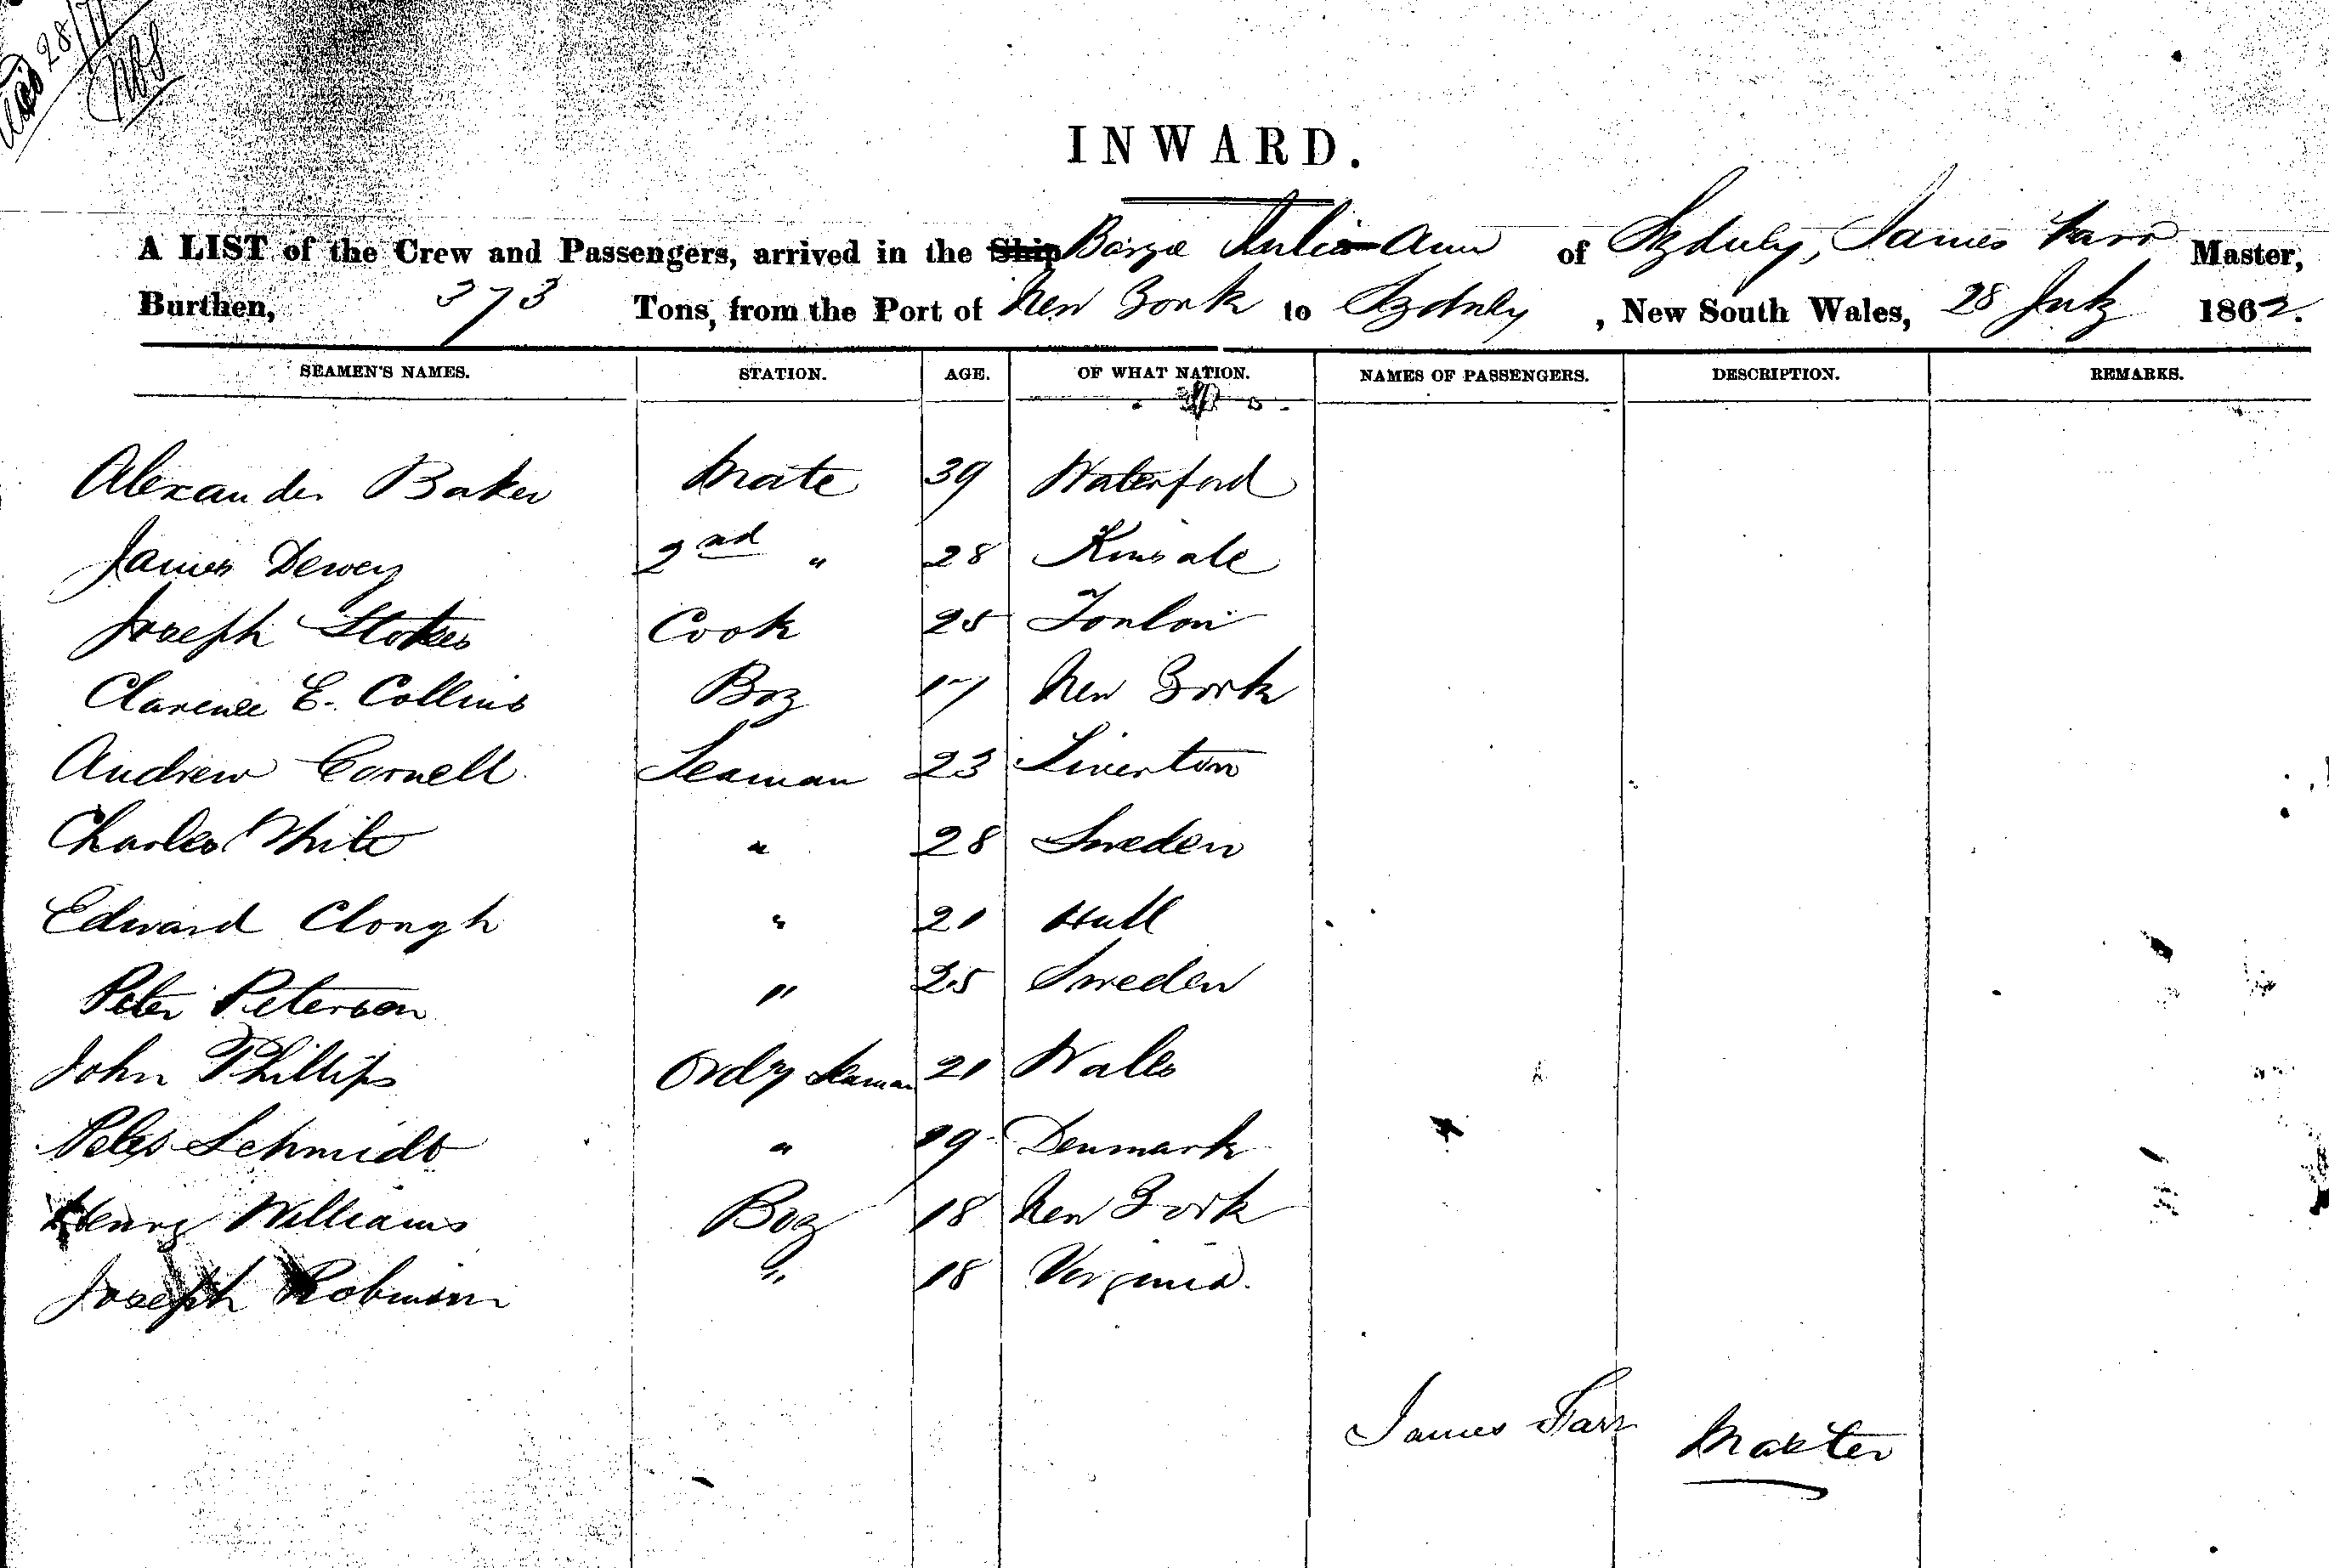 28/7
INWARD.
A LIST of the Crew and Passengers, arrived in the Ship Barque Julia Ann of Sydney, James Farr Master,
Burthen, 373 Tons, from the Port of New York to Sydney, New South Wales, 28 July 1862.
SEAMEN'S NAMES. STATION. AGE. OF WHAT NATION. NAMES OF PASSENGERS. DESCRIPTION. REMARKS.
Alexander Baker Mate 39 Waterford
James Dewey 2nd " 28 Kinsale
Joseph Stokes Cook 25 Toulon
Clarence E. Collins Boy 17 New York
Andrew Cornell Seaman 23 Tiverton
Charles White " 28 Sweden
Edward Clough " 21 Hull
Peter Peterson " 25 Sweden
John Phillips Ordy Seaman 21 Wales
Schmidt " 19 Denmark
Henry Williams Boy 18 New York
Joseph Robinson " 18 Virginia.
James Farr Master